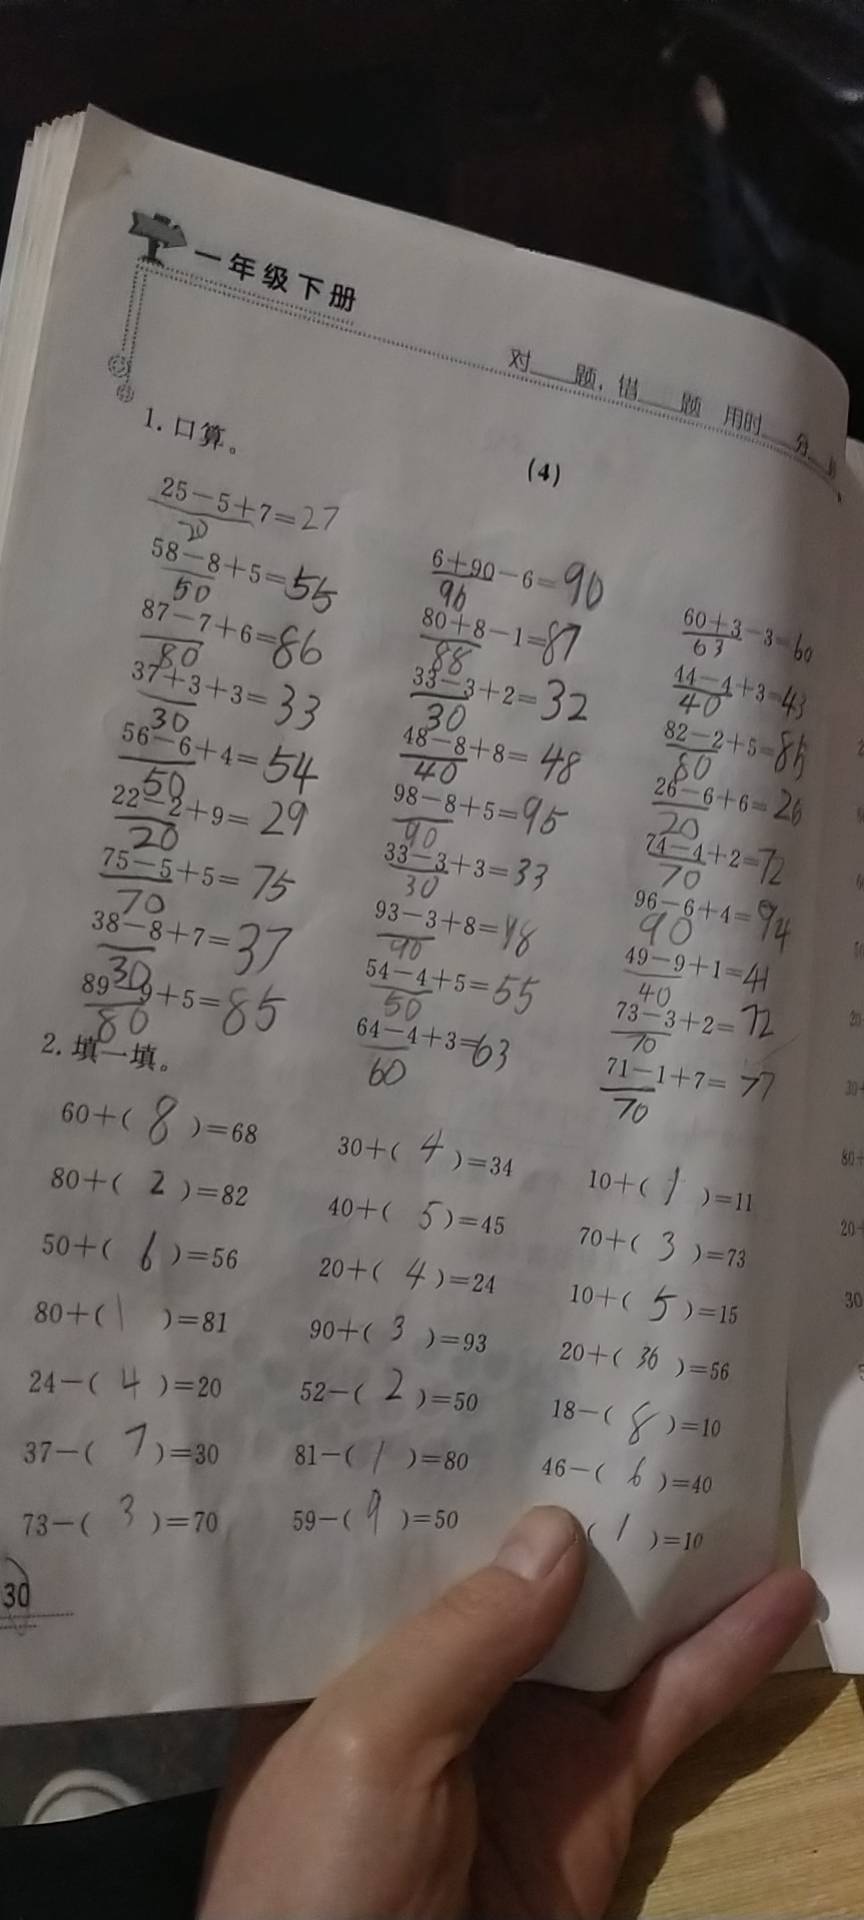 一年级下册
对 题，错 题 用时 分
(4)
1. 口算。
25-5+7=27
20
58-8+5=55
50
87-7+6=86
80
37+3+3=33
30
56-6+4=54
50
22-2+9=29
20
75-5+5=75
70
38-8+7=37
30
89-9+5=85
80
6+90-6=90
96
80+8-1=87
88
33-3+2=32
30
48-8+8=48
40
98-8+5=95
90
33-3+3=33
30
93-3+8=98
90
54-4+5=55
50
64-4+3=63
60
60+3-3=60
63
44-4+3=43
40
82-2+5=85
80
26-6+6=26
20
74-4+2=72
70
96-6+4=94
90
49-9+1=41
40
73-3+2=72
70
71-1+7=77
70
2. 填一填。
60+( 8 )=68 30+( 4 )=34 10+( 1 )=11
80+( 2 )=82 40+( 5 )=45 70+( 3 )=73
50+( 6 )=56 20+( 4 )=24 10+( 5 )=15
80+( 1 )=81 90+( 3 )=93 20+( 36 )=56
24-( 4 )=20 52-( 2 )=50 18-( 8 )=10
37-( 7 )=30 81-( 1 )=80 46-( 6 )=40
73-( 3 )=70 59-( 9 )=50 ( 1 )=10
30